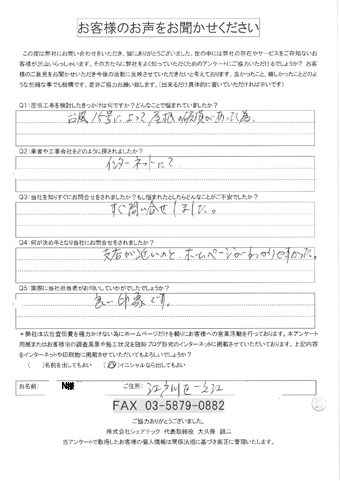 お客様のお声をお聞かせください
この度は弊社にお問い合わせをいただき、誠にありがとうございました。世の中には弊社の存在やサービスをご存知ないお
客様が沢山いらっしゃいます。その方たちに弊社をよく知っていただくためのアンケートにご協力いただけるでしょうか？お客
様のご意見をお聞かせいただき今後の活動に反映させていただきたいと考えております。良かったこと、嬉しかったことどのよ
うな些細な事でも結構です。是非ご協力お願い致します。（出来るだけ具体的に書いていただければ幸いです）
Q1：屋根工事を検討したきっかけは何ですか？どんなことで悩まれていましたか？
台風15号によって屋根の破損があった為。
Q2：業者や工事会社をどのように探されましたか？
インターネットにて
Q3：当社を知りすぐにお問合せをされましたか？もし悩まれたとしたらどんなことがご不安でしたか？
すぐ問い合せしました。
Q4：何が決め手となり当社にお問合せをされましたか？
支店が近いのと、ホームページがわかりやすかった。
Q5：実際に当社担当者がお伺いしていかがでしたでしょうか？
良い印象です。
＊弊社は広告宣伝費を極力かけない為にホームページだけを頼りにお客様への営業活動を行っております。本アンケート
用紙またはお客様宅の調査風景や施工状況を随時ブログ形式のインターネットに掲載させていただいております。上記内容
をインターネットや印刷物に掲載させていただいてもよろしいでしょうか？
（　）名前を出してもよい　（○）イニシャルなら出してもよい
お名前： N様 ご住所： 江戸川区一之江
FAX 03-5879-0882
ご協力ありがとうございました。
株式会社シェアテック 代表取締役 大久保 誠二
当アンケートで取得したお客様の個人情報は関係法規に基づき厳正に管理いたします。